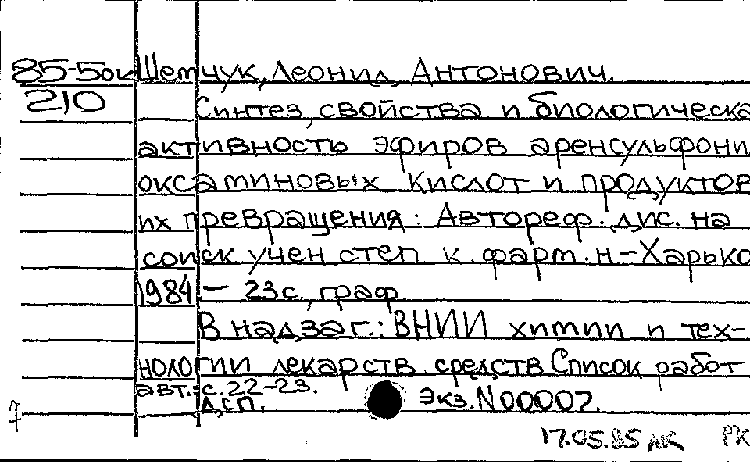 85-5ок Шемчук, Леонид Антонович.
210 Синтез, свойства и биологическа
активность эфиров аренсульфони
оксаминовых кислот и продуктов
их превращения: Автореф. дис. на
соиск учен степ к. фарм. н-Харько
1984 - 23с, граф
В надзаг.: ВНИИ химии и тех-
нологии лекарств. средств Список работ
авт.: с. 22-23.
Д,сп. Экз. N00007.
7
17.05.85 АК РК